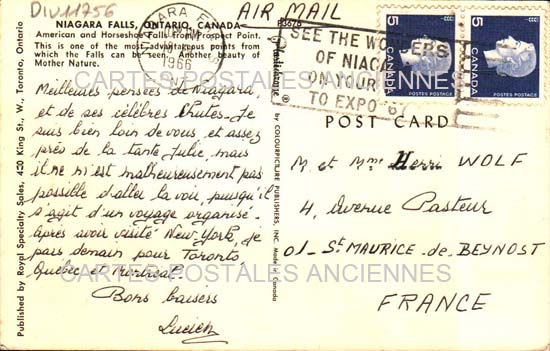 DIV11756
NIAGARA FALLS, ONTARIO, CANADA
American and Horseshoe Falls from Prospect Point.
This is one of the most advantageous points from
which the Falls can be seen. Another beauty of
Mother Nature.
AIR MAIL
P3676
NIAGARA F
1966
SEE THE WONDERS
OF NIAG
ON YOUR
TO EXPO 67
5
CANADA
POSTES POSTAGE
5
CANADA
POSTES POSTAGE
CARTES POSTALES ANCIENNES
Meilleures pensées de Niagara
et de ses célèbres Chutes. Je
suis bien loin de vous, et assez
près de la tante Julie, mais
il ne m'est malheureusement pas
possible d'aller la voir, puisqu'il
s'agit d'un voyage organisé.
Après avoir visité New York, je
pars demain pour Toronto
Québec et Montréal.
Bons baisers
Lucien
Published by Royal Specialty Sales, 420 King St., W., Toronto, Ontario
Plastichrome ®
by COLOURPICTURE PUBLISHERS, INC. Made in Canada
POST CARD
M. et Mme Henri WOLF
4, Avenue Pasteur
01 - St MAURICE - de - BEYNOST
FRANCE
CARTES POSTALES ANCIENNES